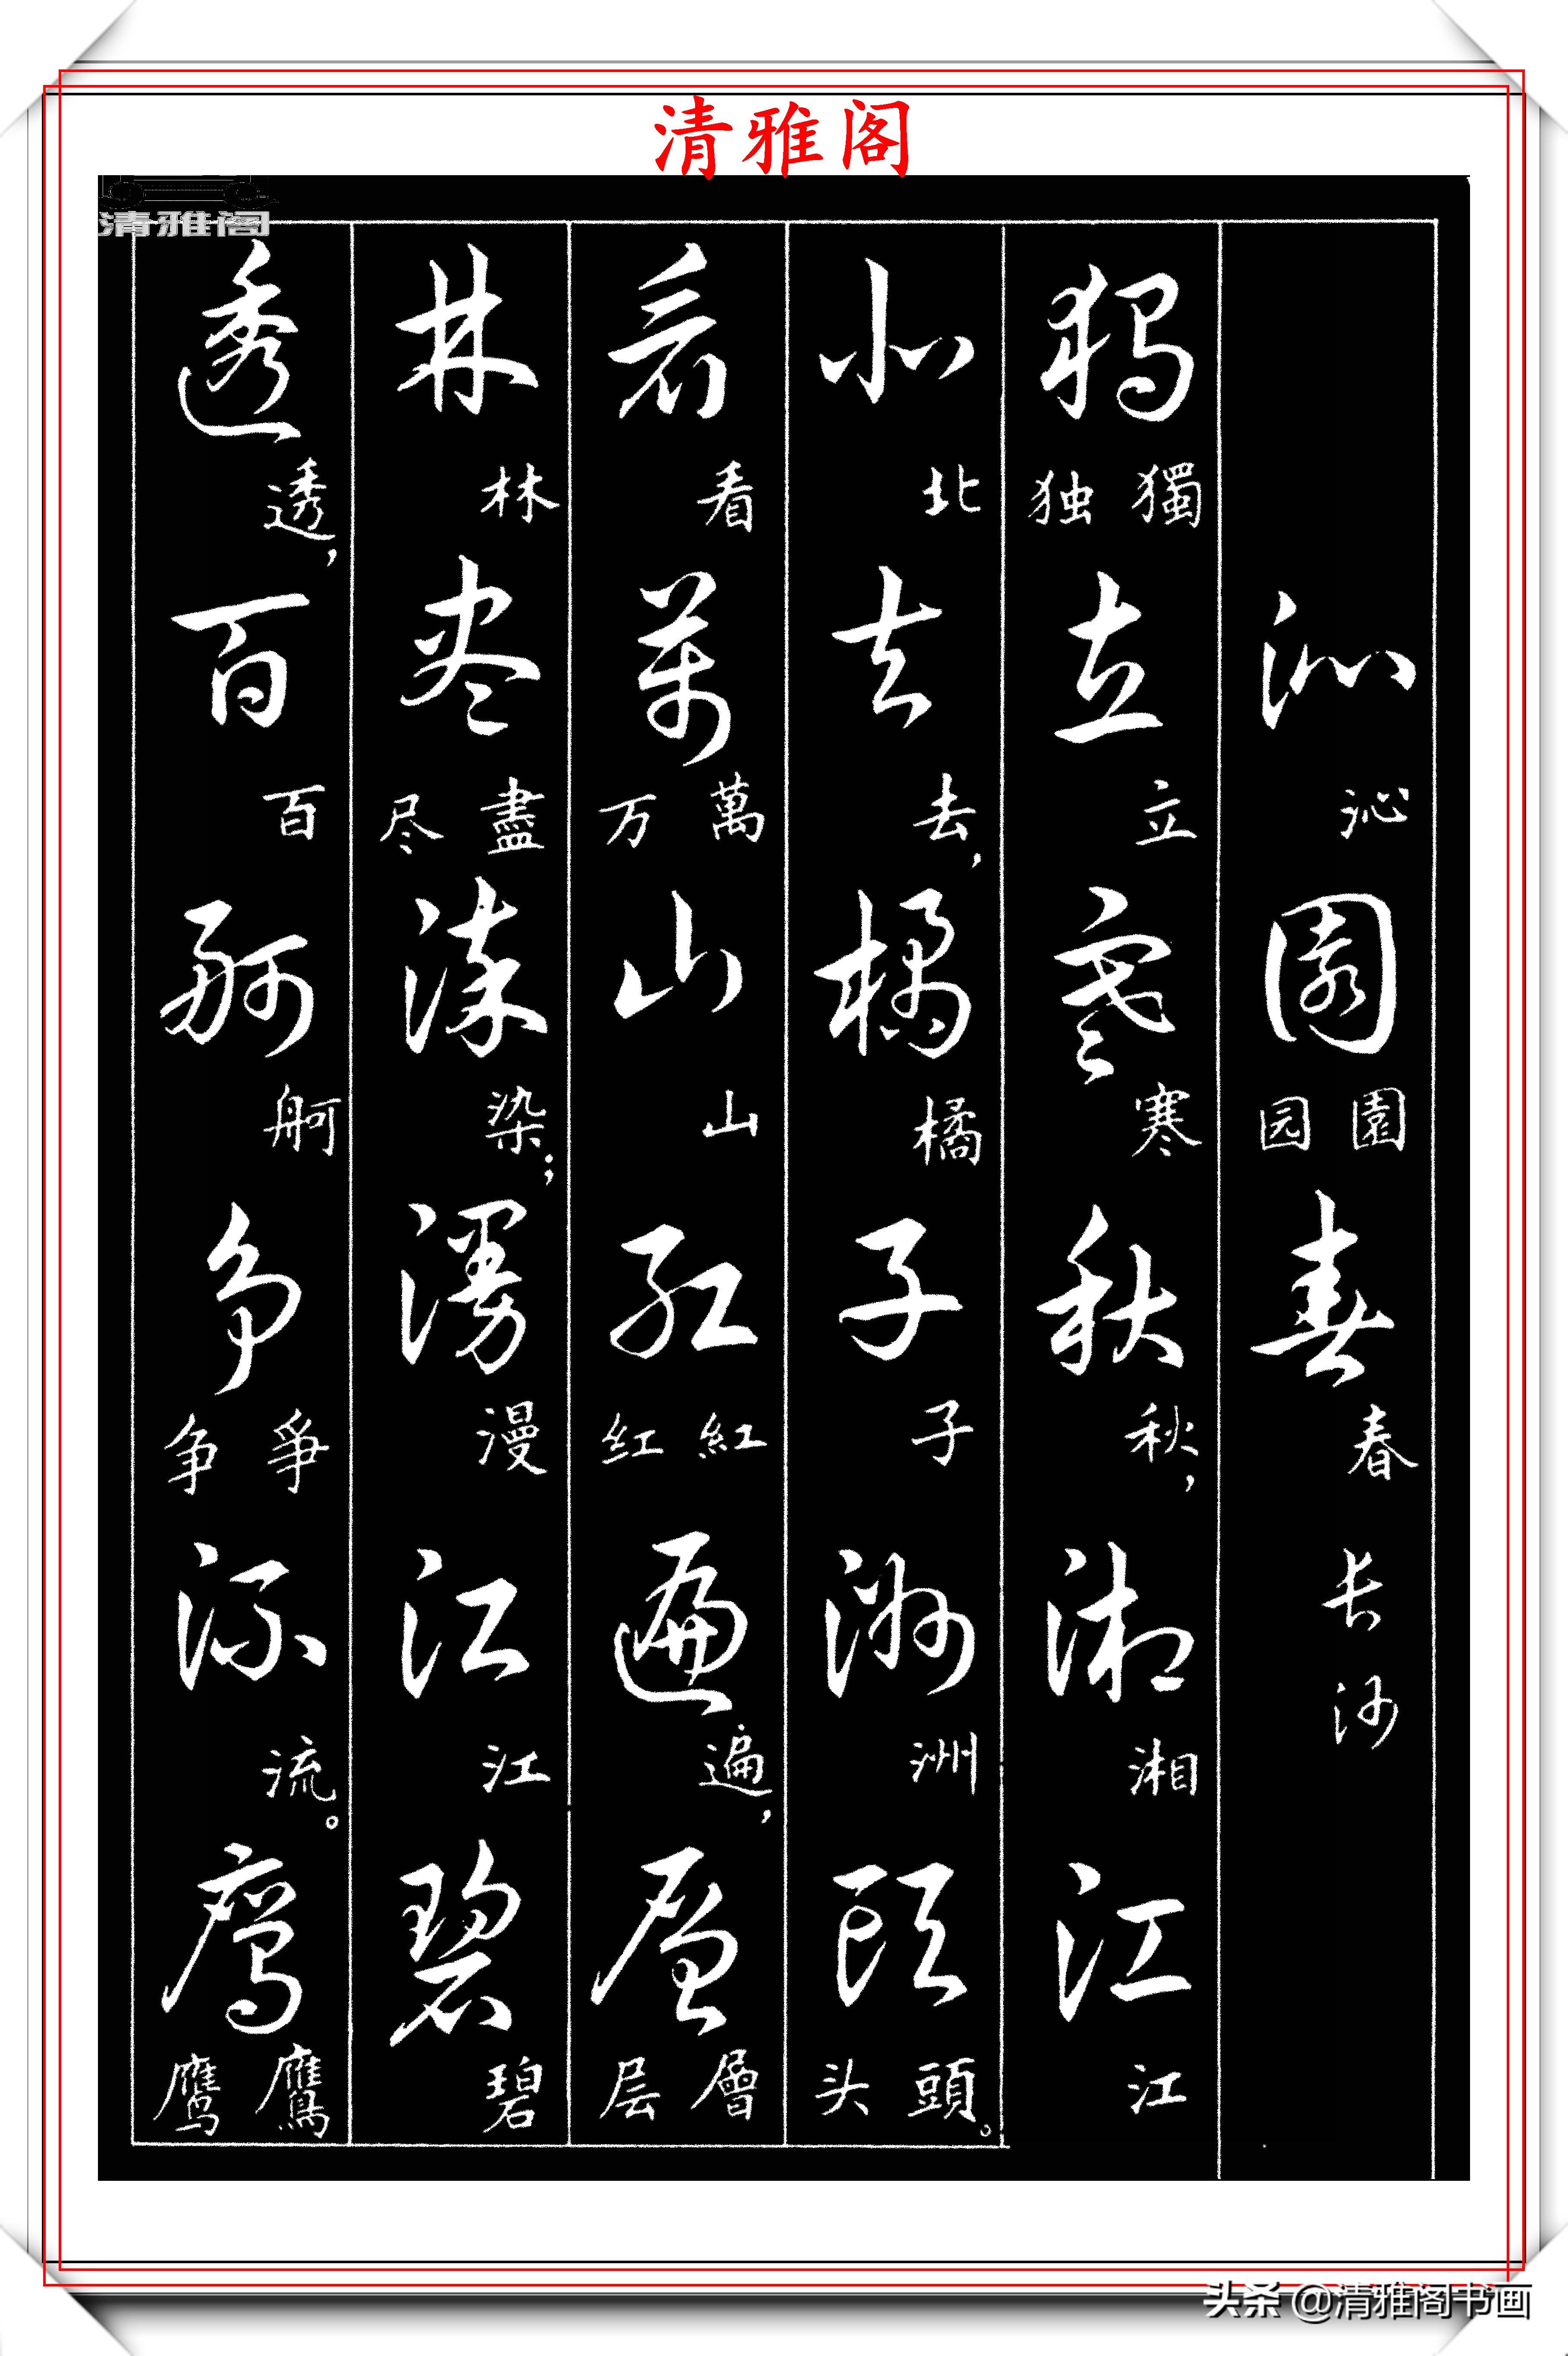 清雅阁
清雅阁
沁沁園園园春春长沙
獨獨独立立寒寒秋秋，湘湘江江
北北去去，橘橘子子洲洲頭頭头。
看看萬萬万山山紅紅红遍遍，層層层
林林盡盡尽染染；漫漫江江碧碧
透透，百百舸舸爭爭争流流。鷹鷹鹰
头条 @清雅阁书画